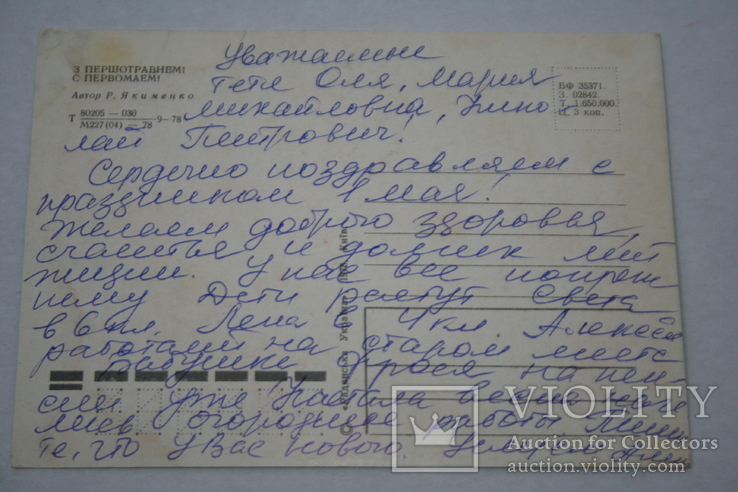 З ПЕРШОТРАВНЕМ!
С ПЕРВОМАЕМ!
Автор Р. Якименко
Т 80205 — 030
М227(04) — 78 9—78
БФ 35371.
З. 02842.
Т. 1.650.000.
Ц. 3 коп.
Уважаемые
тетя Оля, Мария
Михайловна,
лай Петрович!
Сердечно поздравляем с
праздником 1 мая!
Желаем доброго здоровья,
счастья и долгих лет
жизни. У нас все по преж
нему Дети растут Света
в 6 кл. Лена в 4 кл. Алексей
работаем на старом месте
бабушке Фрося на пен
сии. уже настала весна
огородные работы Пиши
те, что у Вас нового.
VIOLITY
Auction for Collectors
auction.violity.com